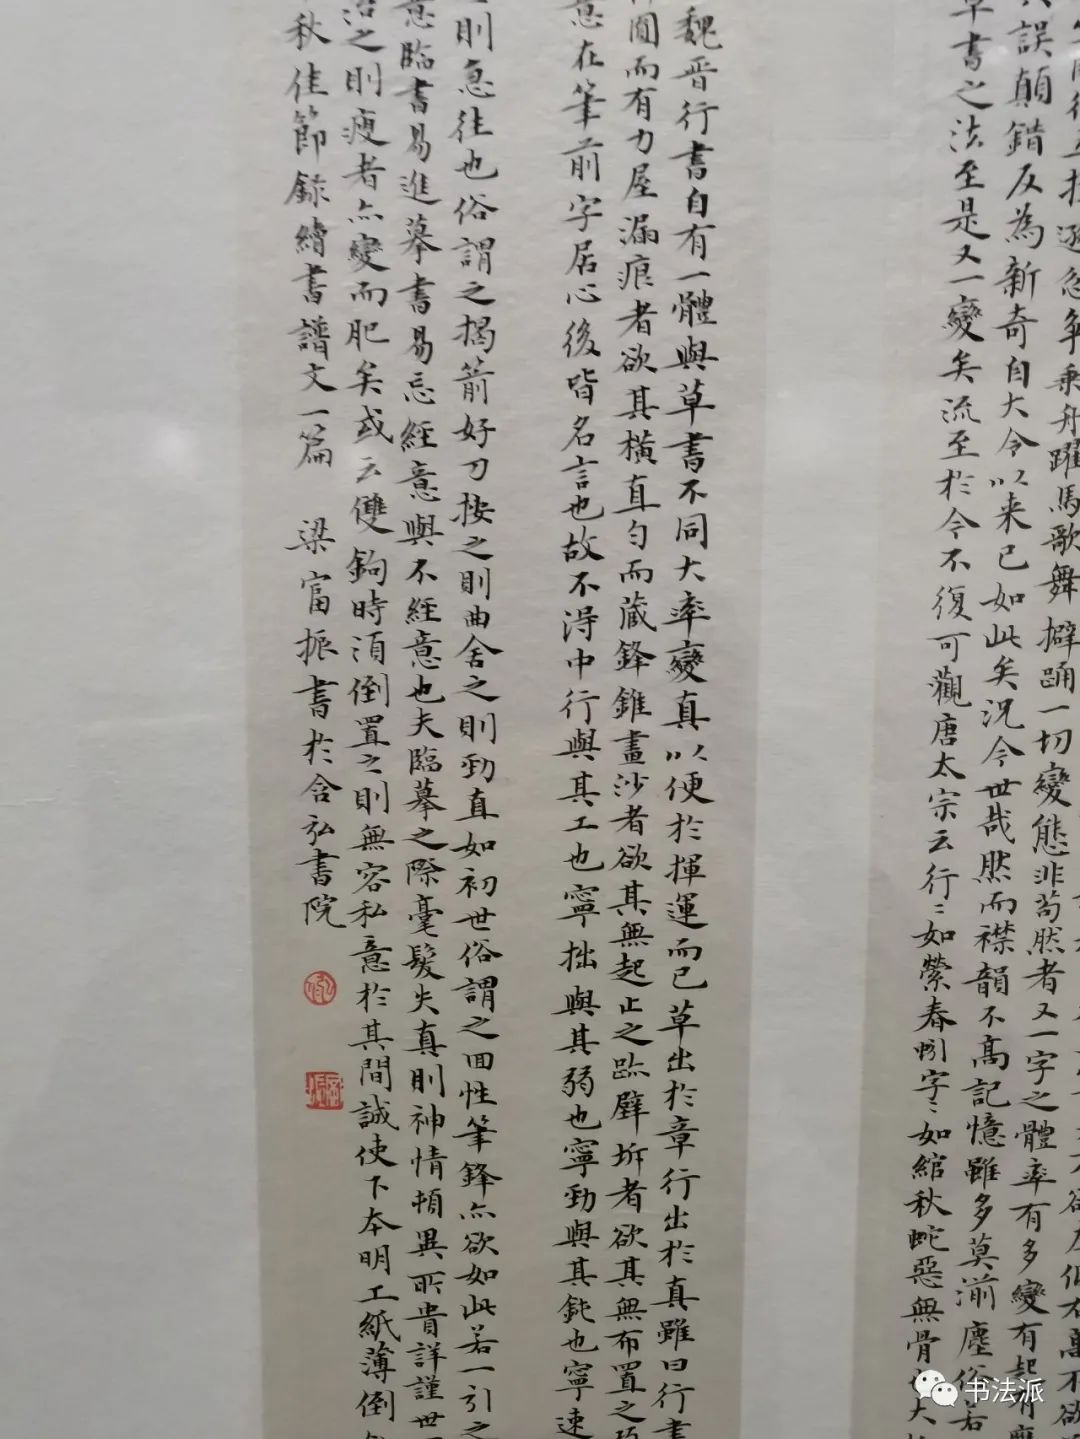 誤顛錯反為新奇自大令以来已如此矣況今世哉然而襟韻不高記憶雖多莫湔塵俗若
草書之法至是又一變矣流至於今不復可觀唐太宗云行〻如縈春蚓字〻如綰秋蛇惡無骨也大
魏晋行書自有一體與草書不同大率變真以便於揮運而已草出於章行出於真雖曰行書
圓而有力屋漏痕者欲其橫直匀而藏鋒錐畫沙者欲其無起止之跡壁坼者欲其無布置之巧
意在筆前字居心後皆名言也故不淂中行與其工也寧拙與其弱也寧勁與其鈍也寧速
則急往也俗謂之揭箭好刀按之則曲舍之則勁直如初世俗謂之回性筆鋒亦欲如此若一引之
意臨書易進摹書易忘經意與不經意也夫臨摹之際毫髮失真則神情頓異所貴詳謹世
治之則瘦者亦變而肥矣或云雙鉤時須倒置之則無容私意於其間誠使下本明工紙薄倒
秋佳節錄續書譜文一篇 梁富振書於含弘書院
书法派